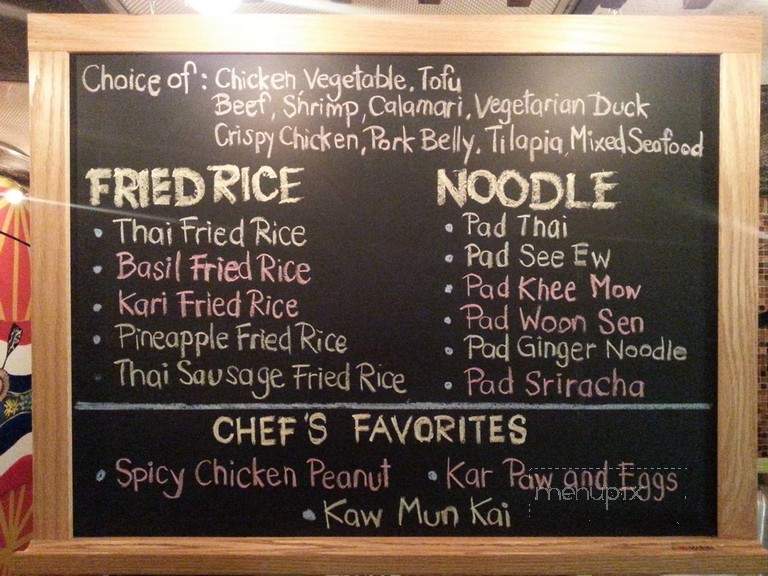 Choice of: Chicken, Vegetable, Tofu
Beef, Shrimp, Calamari, Vegetarian Duck
Crispy Chicken, Pork Belly, Tilapia, Mixed Seafood
FRIED RICE
• Thai Fried Rice
• Basil Fried Rice
• Kari Fried Rice
• Pineapple Fried Rice
• Thai Sausage Fried Rice
NOODLE
• Pad Thai
• Pad See Ew
• Pad Khee Mow
• Pad Woon Sen
• Pad Ginger Noodle
• Pad Sriracha
CHEF'S FAVORITES
• Spicy Chicken Peanut • Kar Paw and Eggs
• Kaw Mun Kai
menupix